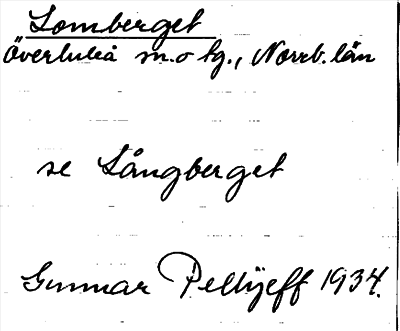 Lomberget
Överluleå m. o tg., Norrb. län
se Långberget
Gunnar Pellijeff 1934.